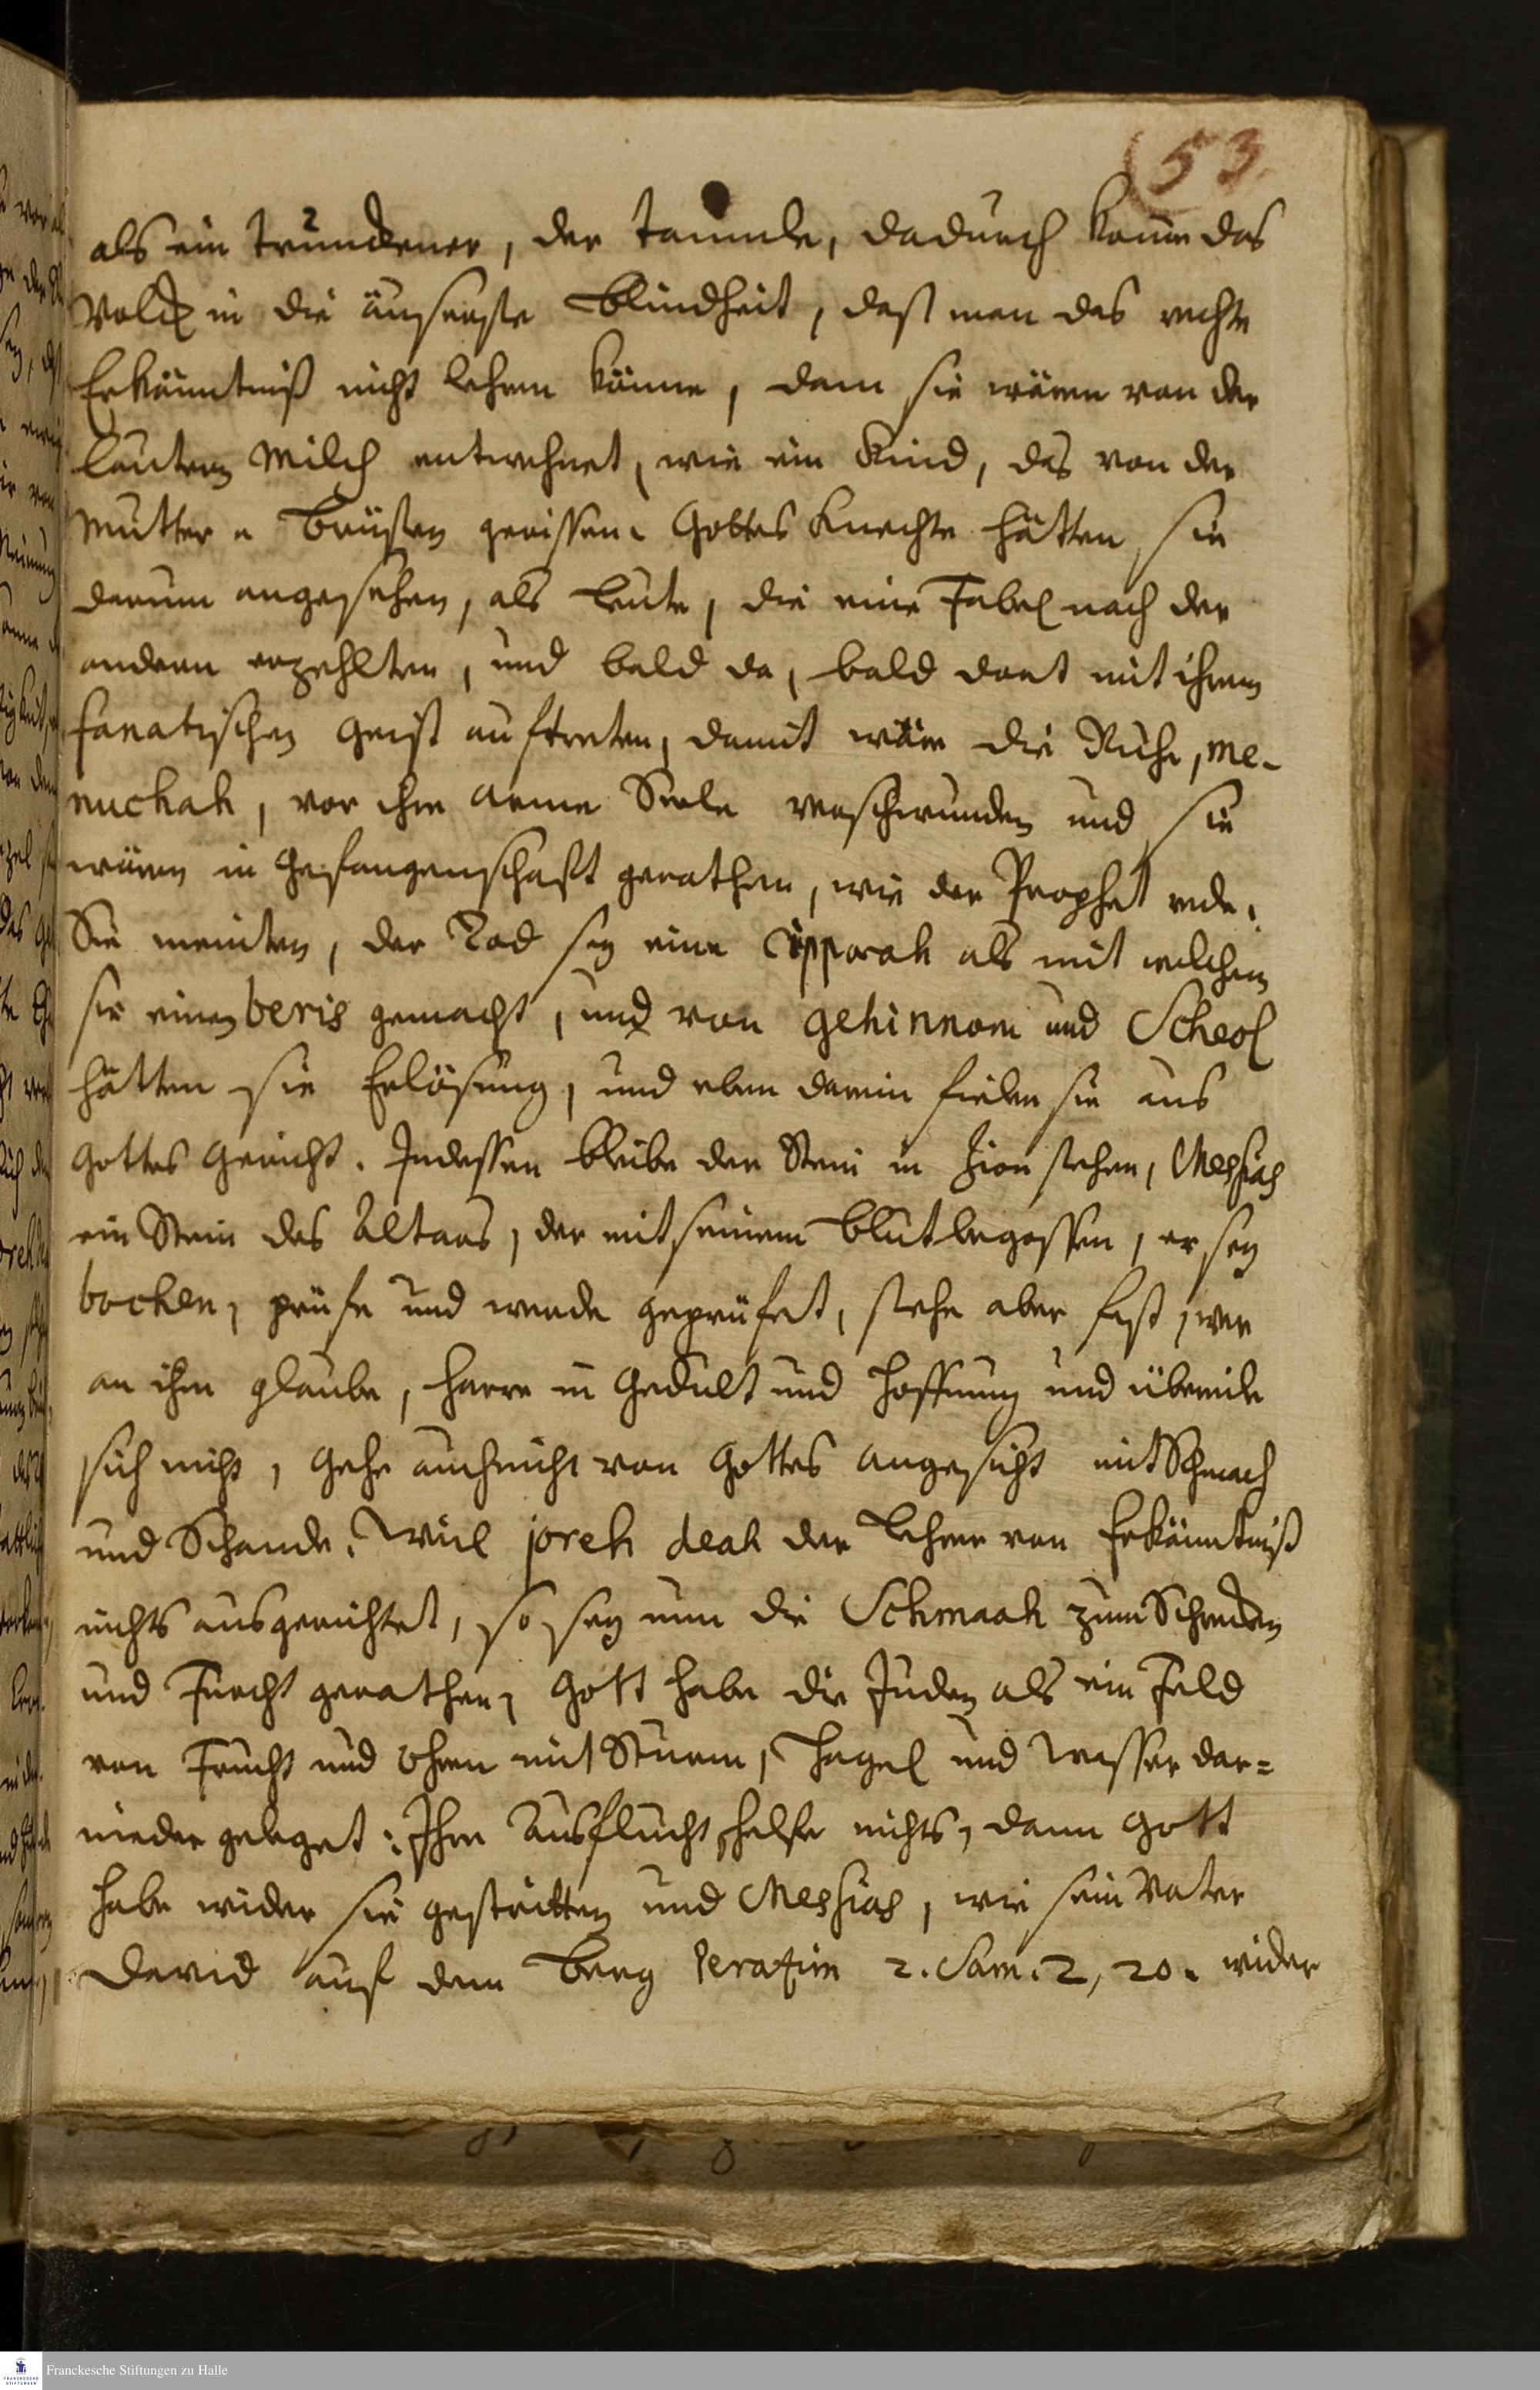 (53.
als ein trunckener, der taumle, dadurch komm das
Volck in die äuserste Blindheit, dass man das rechte
Erkänntniß nicht lehren könne, dann sie wären von der
lautern Milch entwehnet, wie ein Kind, das von der
Mutter Brüsten gerissen. Gottes Knechte hätten sie
darum angesehen, als Leute, die eine Fabel nach der
andern erzehlten, und bald da, bald dort mit ihrem
fanatischen Geist auftreten, damit wäre die Ruhe, me-
nuchah, vor ihre arme Seele verschwunden und sie
wären in Gefangenschafft gerathen, wie der Prophet rede.
Sie meinten, der Tod sey eine Cipporah als mit welchem
sie einen beris gemacht, und von gehinnom und Scheol
hätten sie Erlösung, und eben darin fielen sie aus
Gottes Gericht. Indessen bleibe der Stein in Zion stehen, Messias
ein Stein des Altars, der mit seinem Blut begossen, er sey
bochen, prüfe und werde geprüfet, stehe aber fest, wer
an ihn glaube, harre in Gedult und Hoffnung und übereile
sich nicht, gehe auch nicht von Gottes Angesicht mit Schmach
und Schande. Weil joreh deah der Lehrer von Erkänntniß
nichts ausgerichtet, so sey nun die Schmaah zum Schrecken
und Furcht gerathen, Gott habe die Juden als ein Feld
von Frucht und Ehren mit Sturm, Hagel und Wasser dar=
nieder geleget. Ihre Ausflucht helfe nichts, dann Gott
habe wider sie gestritten und Messias, wie sein Vater
David auf dem Berg Perazim 2. Sam. 2, 20. wider
Franckesche Stiftungen zu Halle